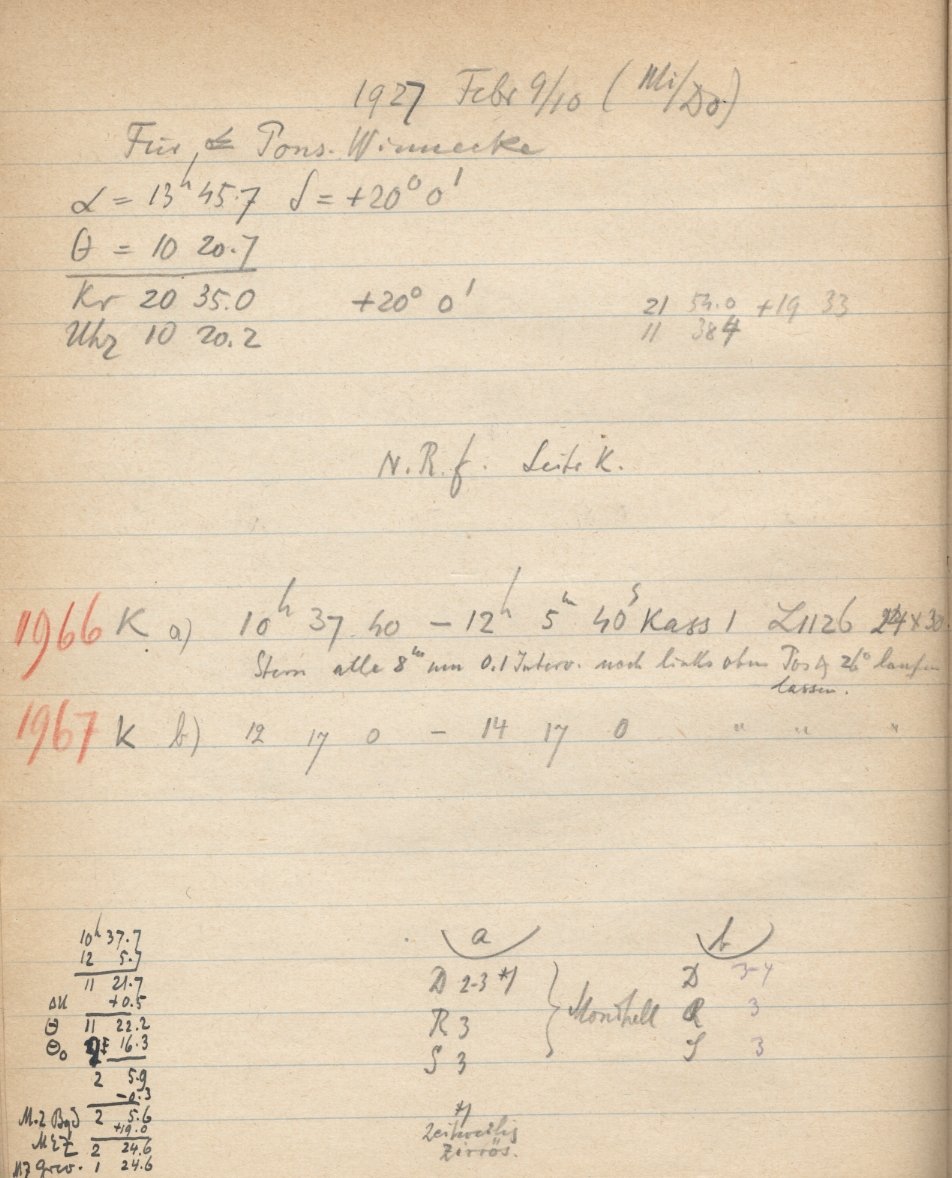 1927 Febr 9/10 (Mi/Do)
Für Pons-Winnecke
α = 13h 45.7 δ = +20° 0'
θ = 10 20.7
Kr 20 35.0 +20° 0' 21 54.0 +19 33
Uhr 10 20.2 11 38 4
N.R.f. Seite K.
1966 K a) 10h 37 40 – 12h 5m 40s Kass 1 L1126 24 x 30
Stern alle 8m um 0.1 Interv. nach links oben Pos 26° laufen
lassen.
1967 K b) 12 17 0 – 14 17 0 " " "
a b
D 2-3 *) D 3-4
R 3 Mondhell R 3
S 3 S 3
*)
Zeitweilig
Zirrös.
10h 37.7
12 5.7
11 21.7
ΔU +0.5
θ 11 22.2
θ₀ 16.3
2 5.9
-0.3
M.Z Bgd 2 5.6
+19.0
MEZ 2 24.6
MZ Grw. 1 24.6